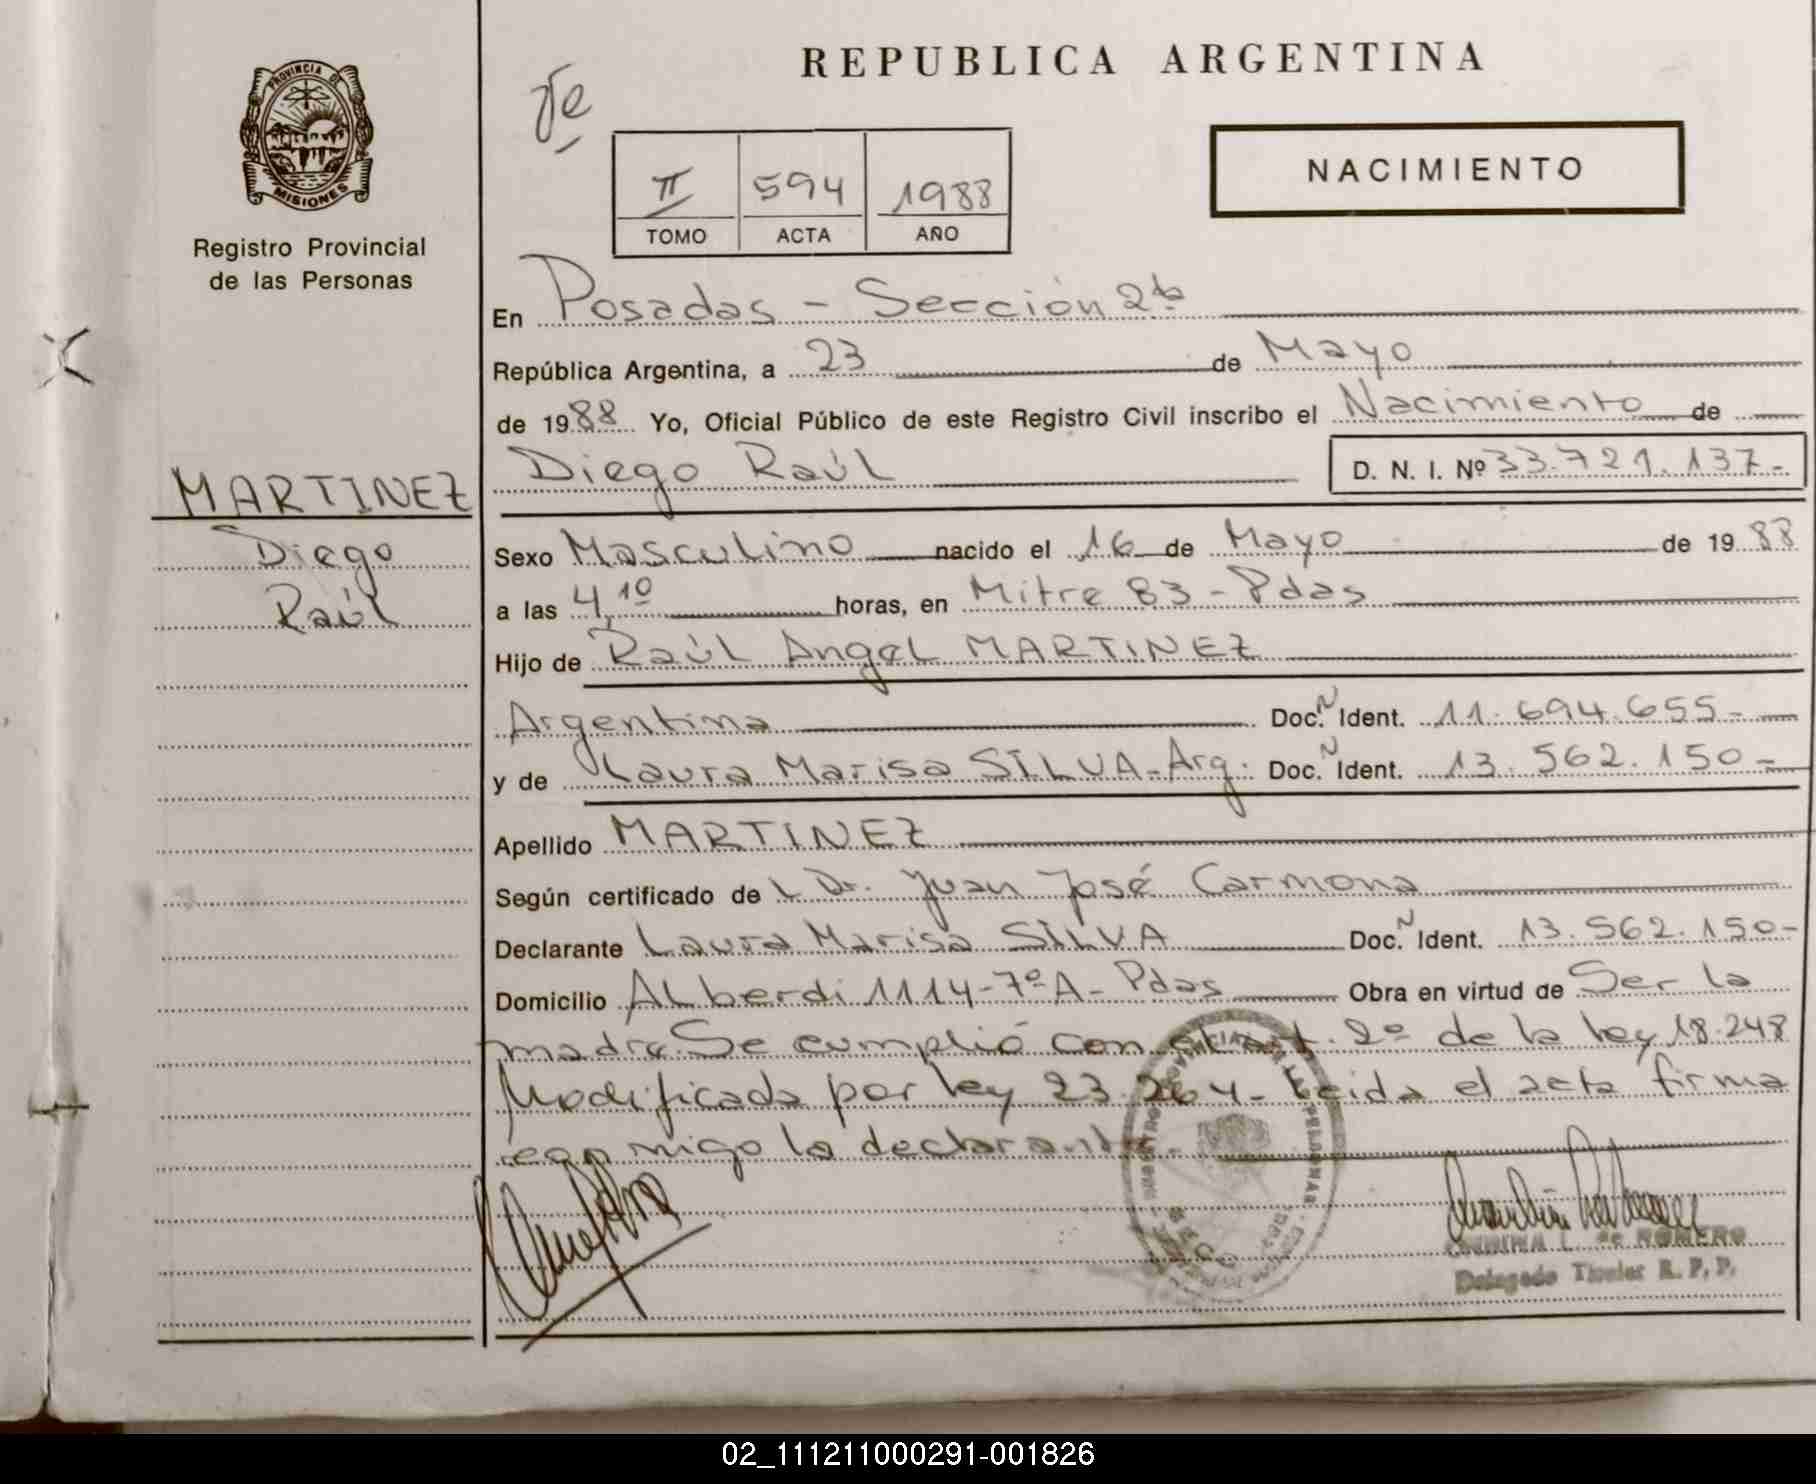 REPUBLICA ARGENTINA
PROVINCIA DE
MISIONES
Registro Provincial
de las Personas
II 594 1988
TOMO ACTA AÑO
NACIMIENTO
MARTINEZ
Diego
Raúl
En Posadas - Sección 2da
República Argentina, a 23 de Mayo
de 1988 Yo, Oficial Público de este Registro Civil inscribo el Nacimiento de
Diego Raúl D. N. I. Nº 33.721.137-
Sexo Masculino nacido el 16 de Mayo de 1988
a las 4,10 horas, en Mitre 83 - Pdas
Hijo de Raúl Angel MARTINEZ
Argentina Doc. N Ident. 11.694.655-
y de Laura Marisa SILVA - Arg. Doc. N Ident. 13.562.150-
Apellido MARTINEZ
Según certificado de L Dr. Juan José Carmona
Declarante Laura Marisa SILVA Doc. N Ident. 13.562.150-
Domicilio ALberdi 1114-7º A - Pdas Obra en virtud de Ser la
madre. Se cumplió con el art. 2º de la ley 18.248
Modificada por ley 23.264 - Leida el acta firma
conmigo la declarante.
L. de ROMERO
Delegado Titular R. P. P.
02_111211000291-001826